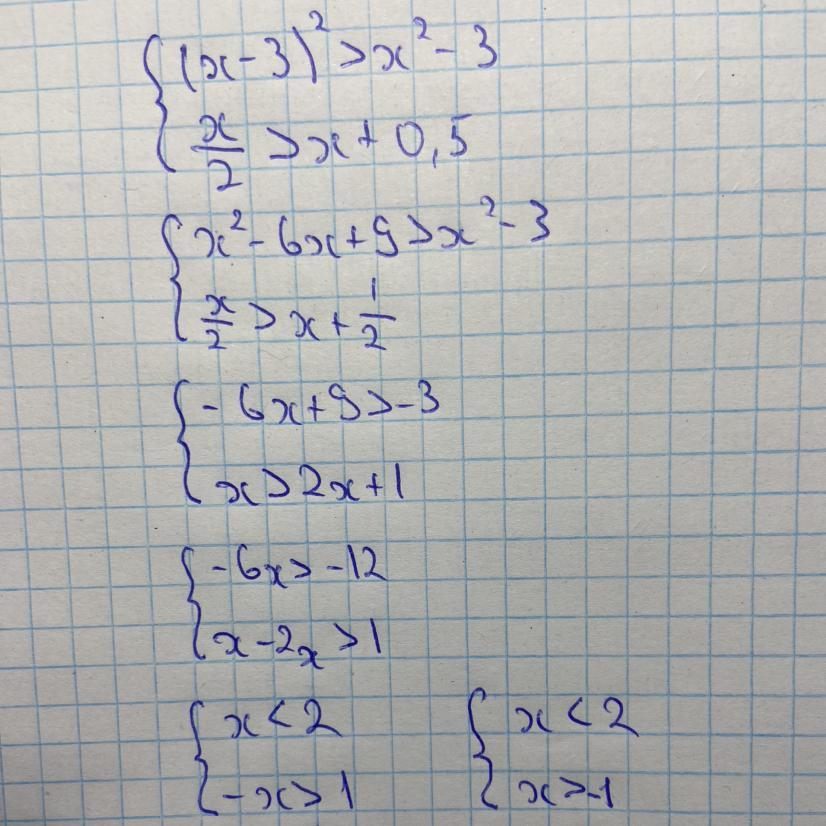 (x-3)² > x² - 3
x/2 > x + 0,5
x² - 6x + 9 > x² - 3
x/2 > x + 1/2
-6x + 9 > -3
x > 2x + 1
-6x > -12
x - 2x > 1
x < 2 x < 2
-x > 1 x > -1